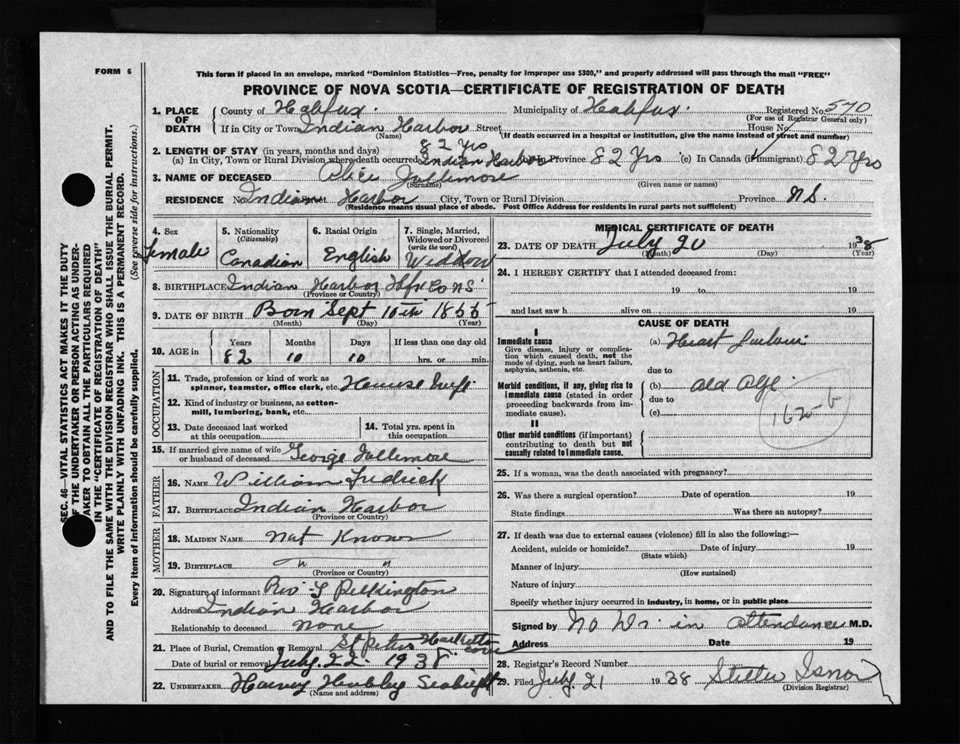 FORM 6
This form if placed in an envelope, marked "Dominion Statistics—Free, penalty for improper use $300," and properly addressed will pass through the mail "FREE"
PROVINCE OF NOVA SCOTIA—CERTIFICATE OF REGISTRATION OF DEATH
1. PLACE OF DEATH
County of Halifax. Municipality of Halifax. Registered No. 570
(For use of Registrar General only)
If in City or Town Indian Harbor Street House No.
(Name) (If death occurred in a hospital or institution, give the name instead of street and number)
2. LENGTH OF STAY (in years, months and days) 82 Yrs
(a) In City, Town or Rural Division where death occurred Indian Harbor Province 82 Yrs (c) In Canada (if immigrant) 82 Yrs
3. NAME OF DECEASED Alice
(Surname) (Given name or names)
RESIDENCE No. Indian Street Harbor City, Town or Rural Division Province N.S.
(Residence means usual place of abode. Post Office Address for residents in rural parts not sufficient)
4. Sex Female
5. Nationality (Citizenship) Canadian
6. Racial Origin English
7. Single, Married, Widowed or Divorced (write the word) Widdow
8. BIRTHPLACE Indian Harbor Hfx Co NS
(Province or Country)
9. DATE OF BIRTH Born Sept 10th 1855
(Month) (Day) (Year)
10. AGE in Years 82 Months 10 Days 10 If less than one day old hrs. or min.
OCCUPATION
11. Trade, profession or kind of work as spinner, teamster, office clerk, etc. House Wife
12. Kind of industry or business, as cotton-mill, lumbering, bank, etc.
13. Date deceased last worked at this occupation
14. Total yrs. spent in this occupation
15. If married give name of wife or husband of deceased George
FATHER
16. NAME William Fredrick
17. BIRTHPLACE Indian Harbor
(Province or Country)
MOTHER
18. MAIDEN NAME Not Known
19. BIRTHPLACE " "
(Province or Country)
20. Signature of informant Rev Pilkington
Address Indian Harbor
Relationship to deceased None
21. Place of Burial, Cremation or Removal St Peters Hacketts Cove
Date of burial or removal July 22 1938
22. UNDERTAKER Harvey Hubley Seabright
(Name and address)
MEDICAL CERTIFICATE OF DEATH
23. DATE OF DEATH July 20 1938
(Month) (Day) (Year)
24. I HEREBY CERTIFY that I attended deceased from:
19 to 19
and last saw h alive on 19
CAUSE OF DEATH
I
Immediate cause
Give disease, injury or complication which caused death, not the mode of dying, such as heart failure, asphyxia, asthenia, etc.
(a) Heart failure
due to
Morbid conditions, if any, giving rise to immediate cause (stated in order proceeding backwards from immediate cause).
(b) Old Age.
due to
(c)
162 b
II
Other morbid conditions (if important) contributing to death but not causally related to immediate cause.
25. If a woman, was the death associated with pregnancy?
26. Was there a surgical operation? Date of operation 19
State findings Was there an autopsy?
27. If death was due to external causes (violence) fill in also the following:—
Accident, suicide or homicide? Date of injury 19
(State which)
Manner of injury
(How sustained)
Nature of injury
Specify whether injury occurred in industry, in home, or in public place
Signed by No Dr. in attendance M.D.
Address Date 19
28. Registrar's Record Number
29. Filed July 21 1938 Isnor
(Division Registrar)
SEC. 46—VITAL STATISTICS ACT MAKES IT THE DUTY
OF THE UNDERTAKER OR PERSON ACTING AS UNDER-
TAKER TO OBTAIN ALL THE PARTICULARS REQUIRED
IN THE "CERTIFICATE OF REGISTRATION OF DEATH"
AND TO FILE THE SAME WITH THE DIVISION REGISTRAR WHO SHALL ISSUE THE BURIAL PERMIT.
WRITE PLAINLY WITH UNFADING INK. THIS IS A PERMANENT RECORD.
Every item of information should be carefully supplied. (See reverse side for instructions.)